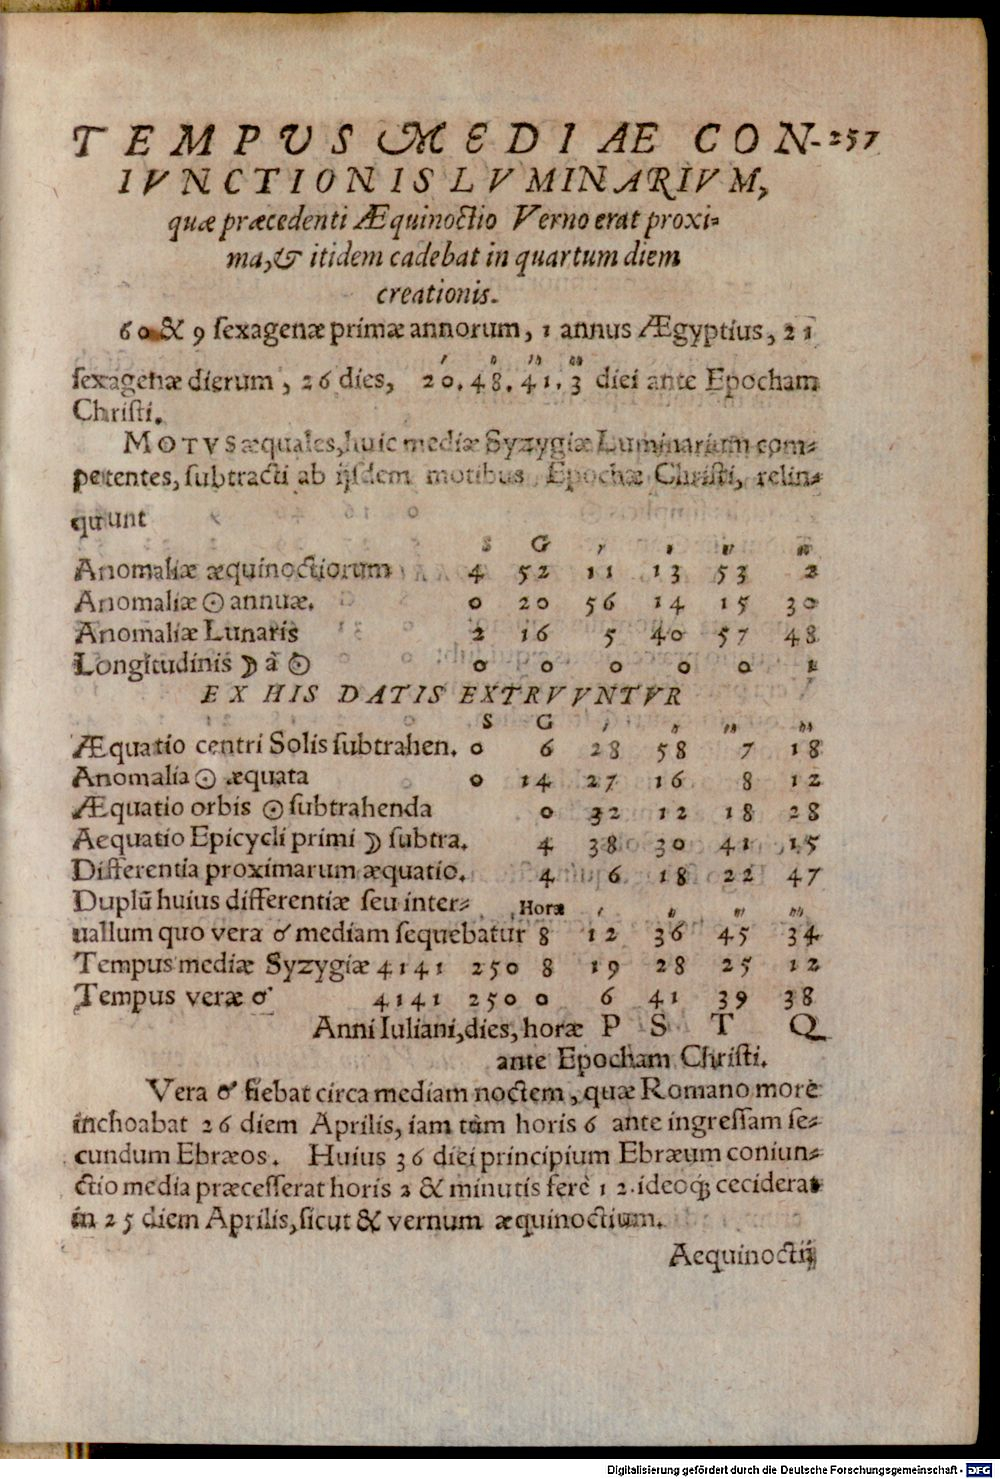 TEMPUS MEDIAE CON- 257
IVNCTIONIS LVMINARIVM,
quæ præcedenti Æquinoctio Verno erat proxi-
ma, & itidem cadebat in quartum diem
creationis.
60 & 9 sexagenæ primæ annorum, 1 annus Ægyptius, 21
′ ″ ‴ ⁗
sexagenæ dierum, 26 dies, 20. 48. 41. 3 diei ante Epocham
Christi.
MOTVS æquales, huic mediæ Syzygiæ Luminarium com-
petentes, subtracti ab ijsdem motibus Epochæ Christi, relin-
quunt
S G ′ ″ ‴ ⁗
Anomaliæ æquinoctiorum 4 52 11 13 53 2
Anomaliæ ☉ annuæ. 0 20 56 14 15 30
Anomaliæ Lunaris 2 16 5 40 57 48
Longitudinis ☽ à ☉ 0 0 0 0 0 1
EX HIS DATIS EXTRVVNTVR
S G ′ ″ ‴ ⁗
Æquatio centri Solis subtrahen. 0 6 28 58 7 18
Anomalia ☉ æquata 0 14 27 16 8 12
Æquatio orbis ☉ subtrahenda 0 32 12 18 28
Aequatio Epicycli primi ☽ subtra. 4 38 30 41 15
Differentia proximarum æquatio. 4 6 18 22 47
Duplũ huius differentiæ seu inter- Horæ ′ ″ ‴ ⁗
uallum quo vera ☌ mediam sequebatur 8 12 36 45 34
Tempus mediæ Syzygiæ 4141 250 8 19 28 25 12
Tempus veræ ☌ 4141 250 0 6 41 39 38
Anni Iuliani, dies, horæ P S T Q
ante Epocham Christi.
Vera ☌ fiebat circa mediam noctem, quæ Romano more
inchoabat 26 diem Aprilis, iam tùm horis 6 ante ingressam se-
cundum Ebræos. Huius 36 diei principium Ebræum coniun-
ctio media præcesserat horis 2 & minutis ferè 12. ideoq; ceciderat
in 25 diem Aprilis, sicut & vernum æquinoctium.
Aequinoctij
Digitalisierung gefördert durch die Deutsche Forschungsgemeinschaft - DFG